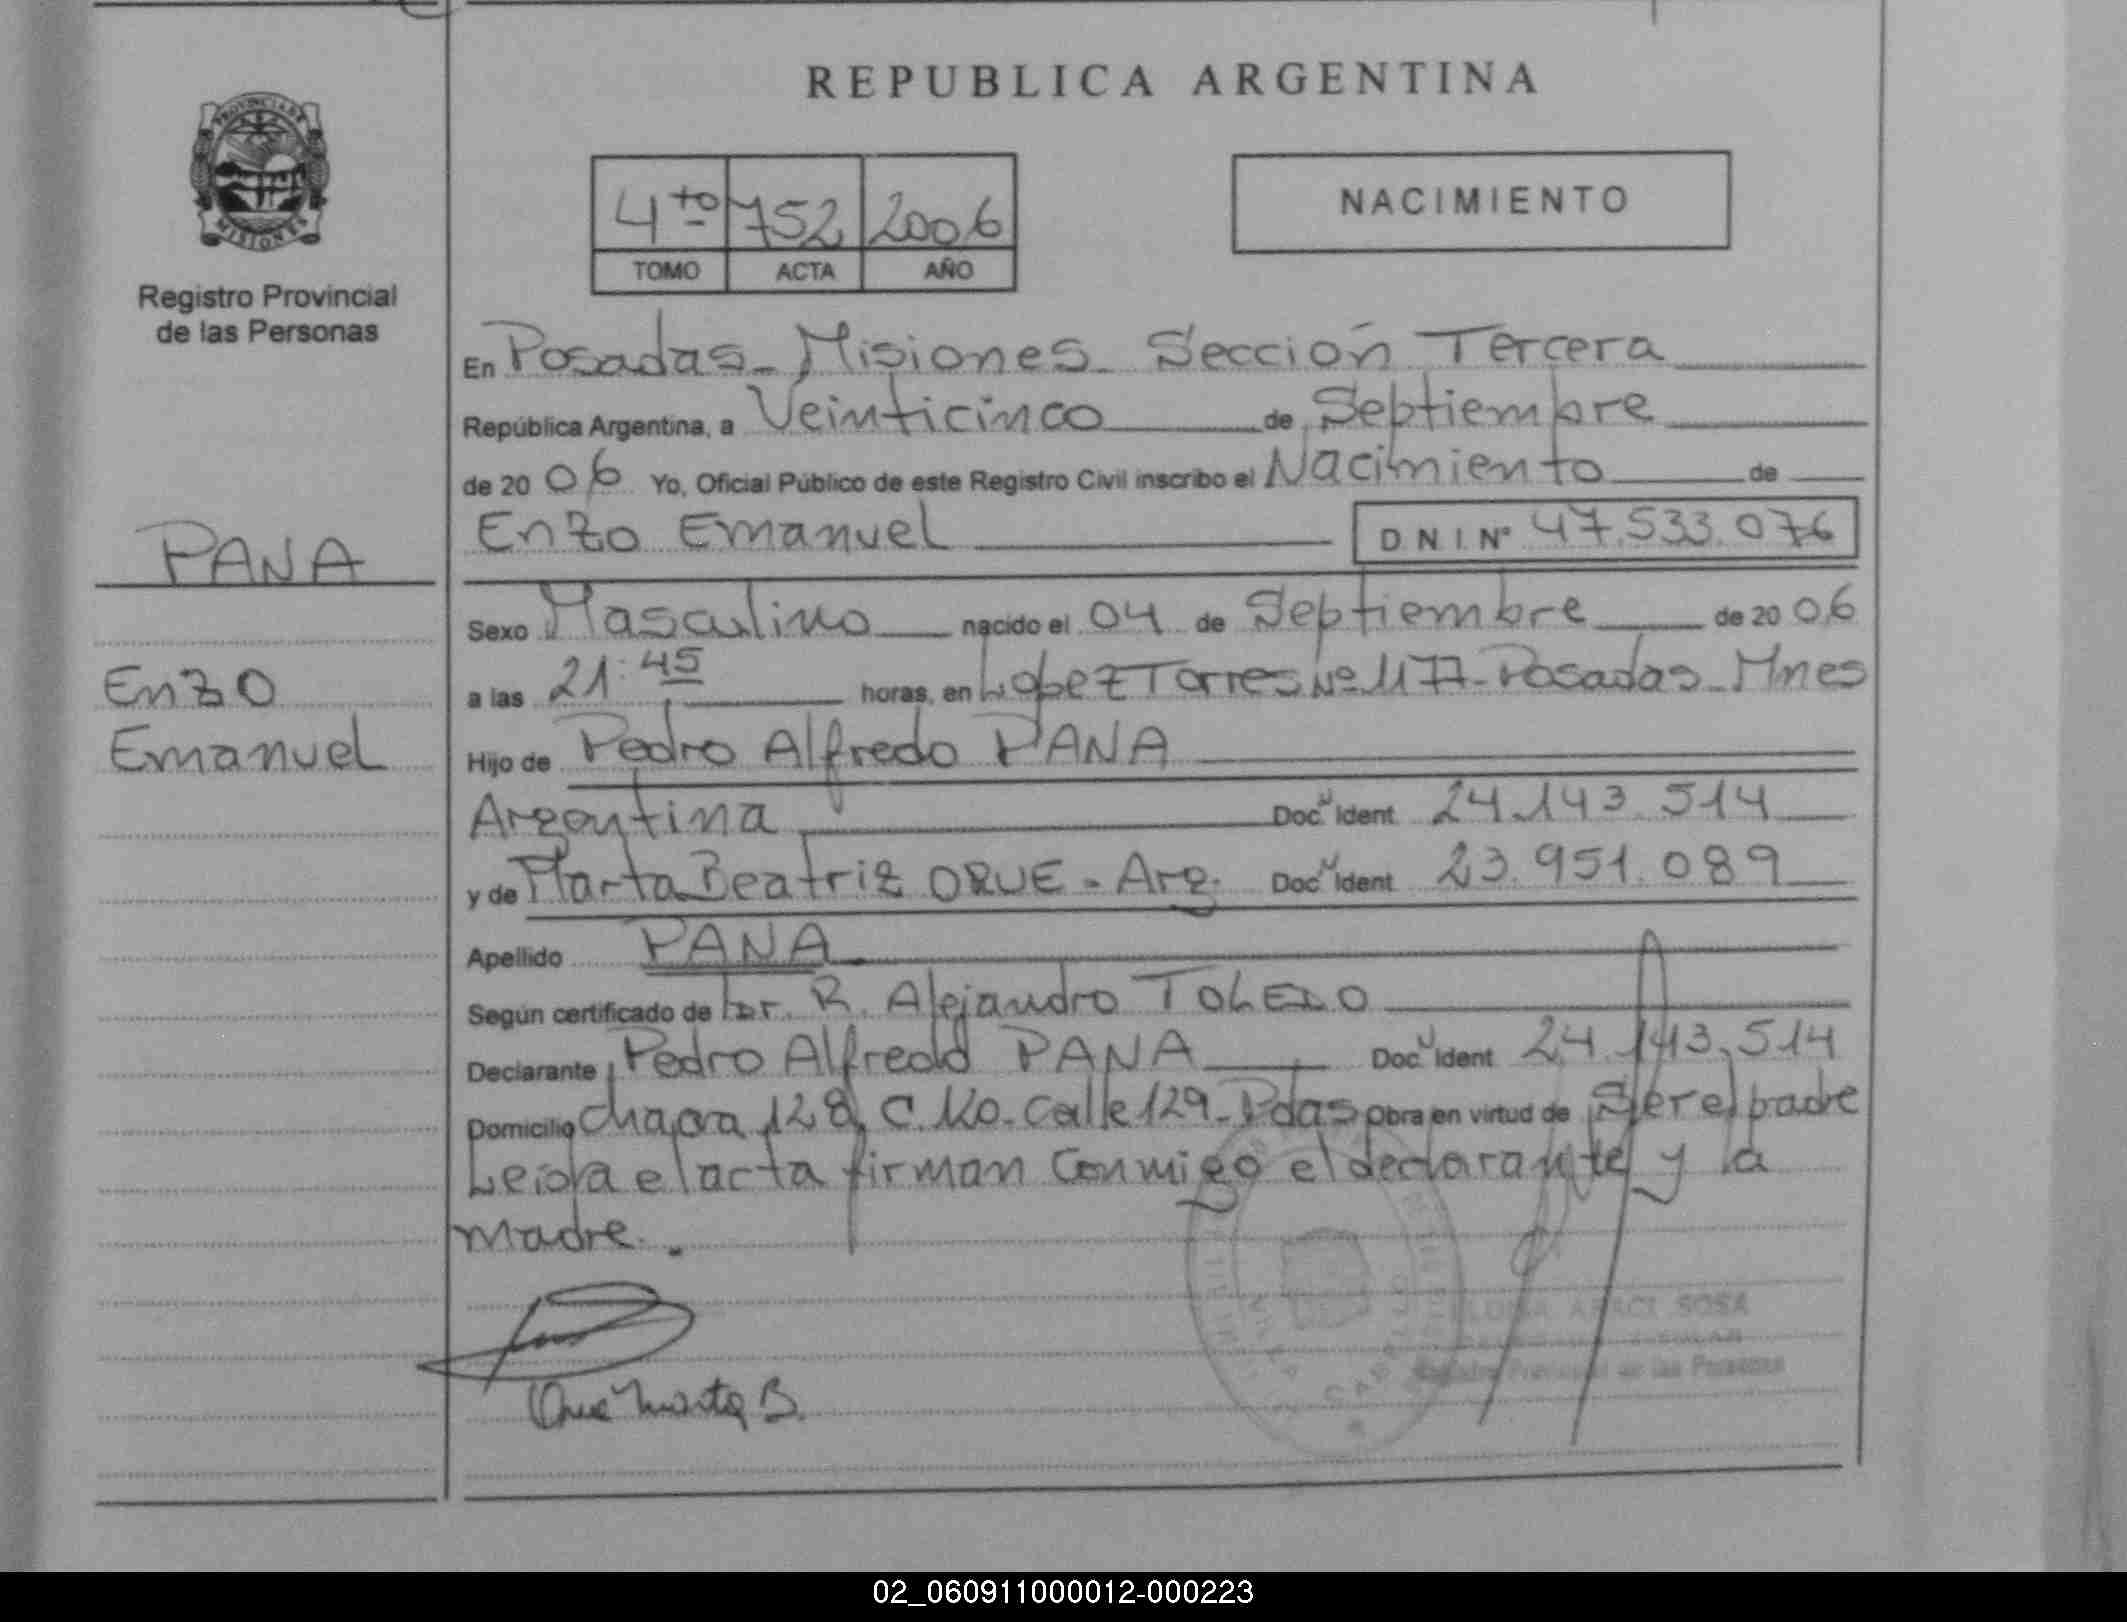 REPUBLICA ARGENTINA
PROVINCIA DE
MISIONES
Registro Provincial
de las Personas
4to 752 2006
TOMO ACTA AÑO
NACIMIENTO
En Posadas - Misiones - Sección Tercera
República Argentina, a Veinticinco de Septiembre
de 20 06 Yo, Oficial Público de este Registro Civil inscribo el Nacimiento de
Enzo Emanuel D.N.I. Nº 47.533.076
PANA
Enzo
Emanuel
Sexo Masculino nacido el 04 de Septiembre de 20 06
a las 21:45 horas, en Lopez Torres Nº 1177 - Posadas - Mnes
Hijo de Pedro Alfredo PANA
Argentina Doc. Ident 24.143.514
y de Marta Beatriz ORUE - Arg. Doc. Ident 23.951.089
Apellido PANA
Según certificado de Dr. R. Alejandro TOLEDO
Declarante Pedro Alfredo PANA Doc. Ident 24.143.514
Domicilio Chacra 128, C. Ko - Calle 129 - Pdas Obra en virtud de Ser el padre
Leida el acta firman conmigo el declarante y la
madre.
Orue Marta B.
ARACI SOSA
Registro Provincial de las Personas
02_060911000012-000223